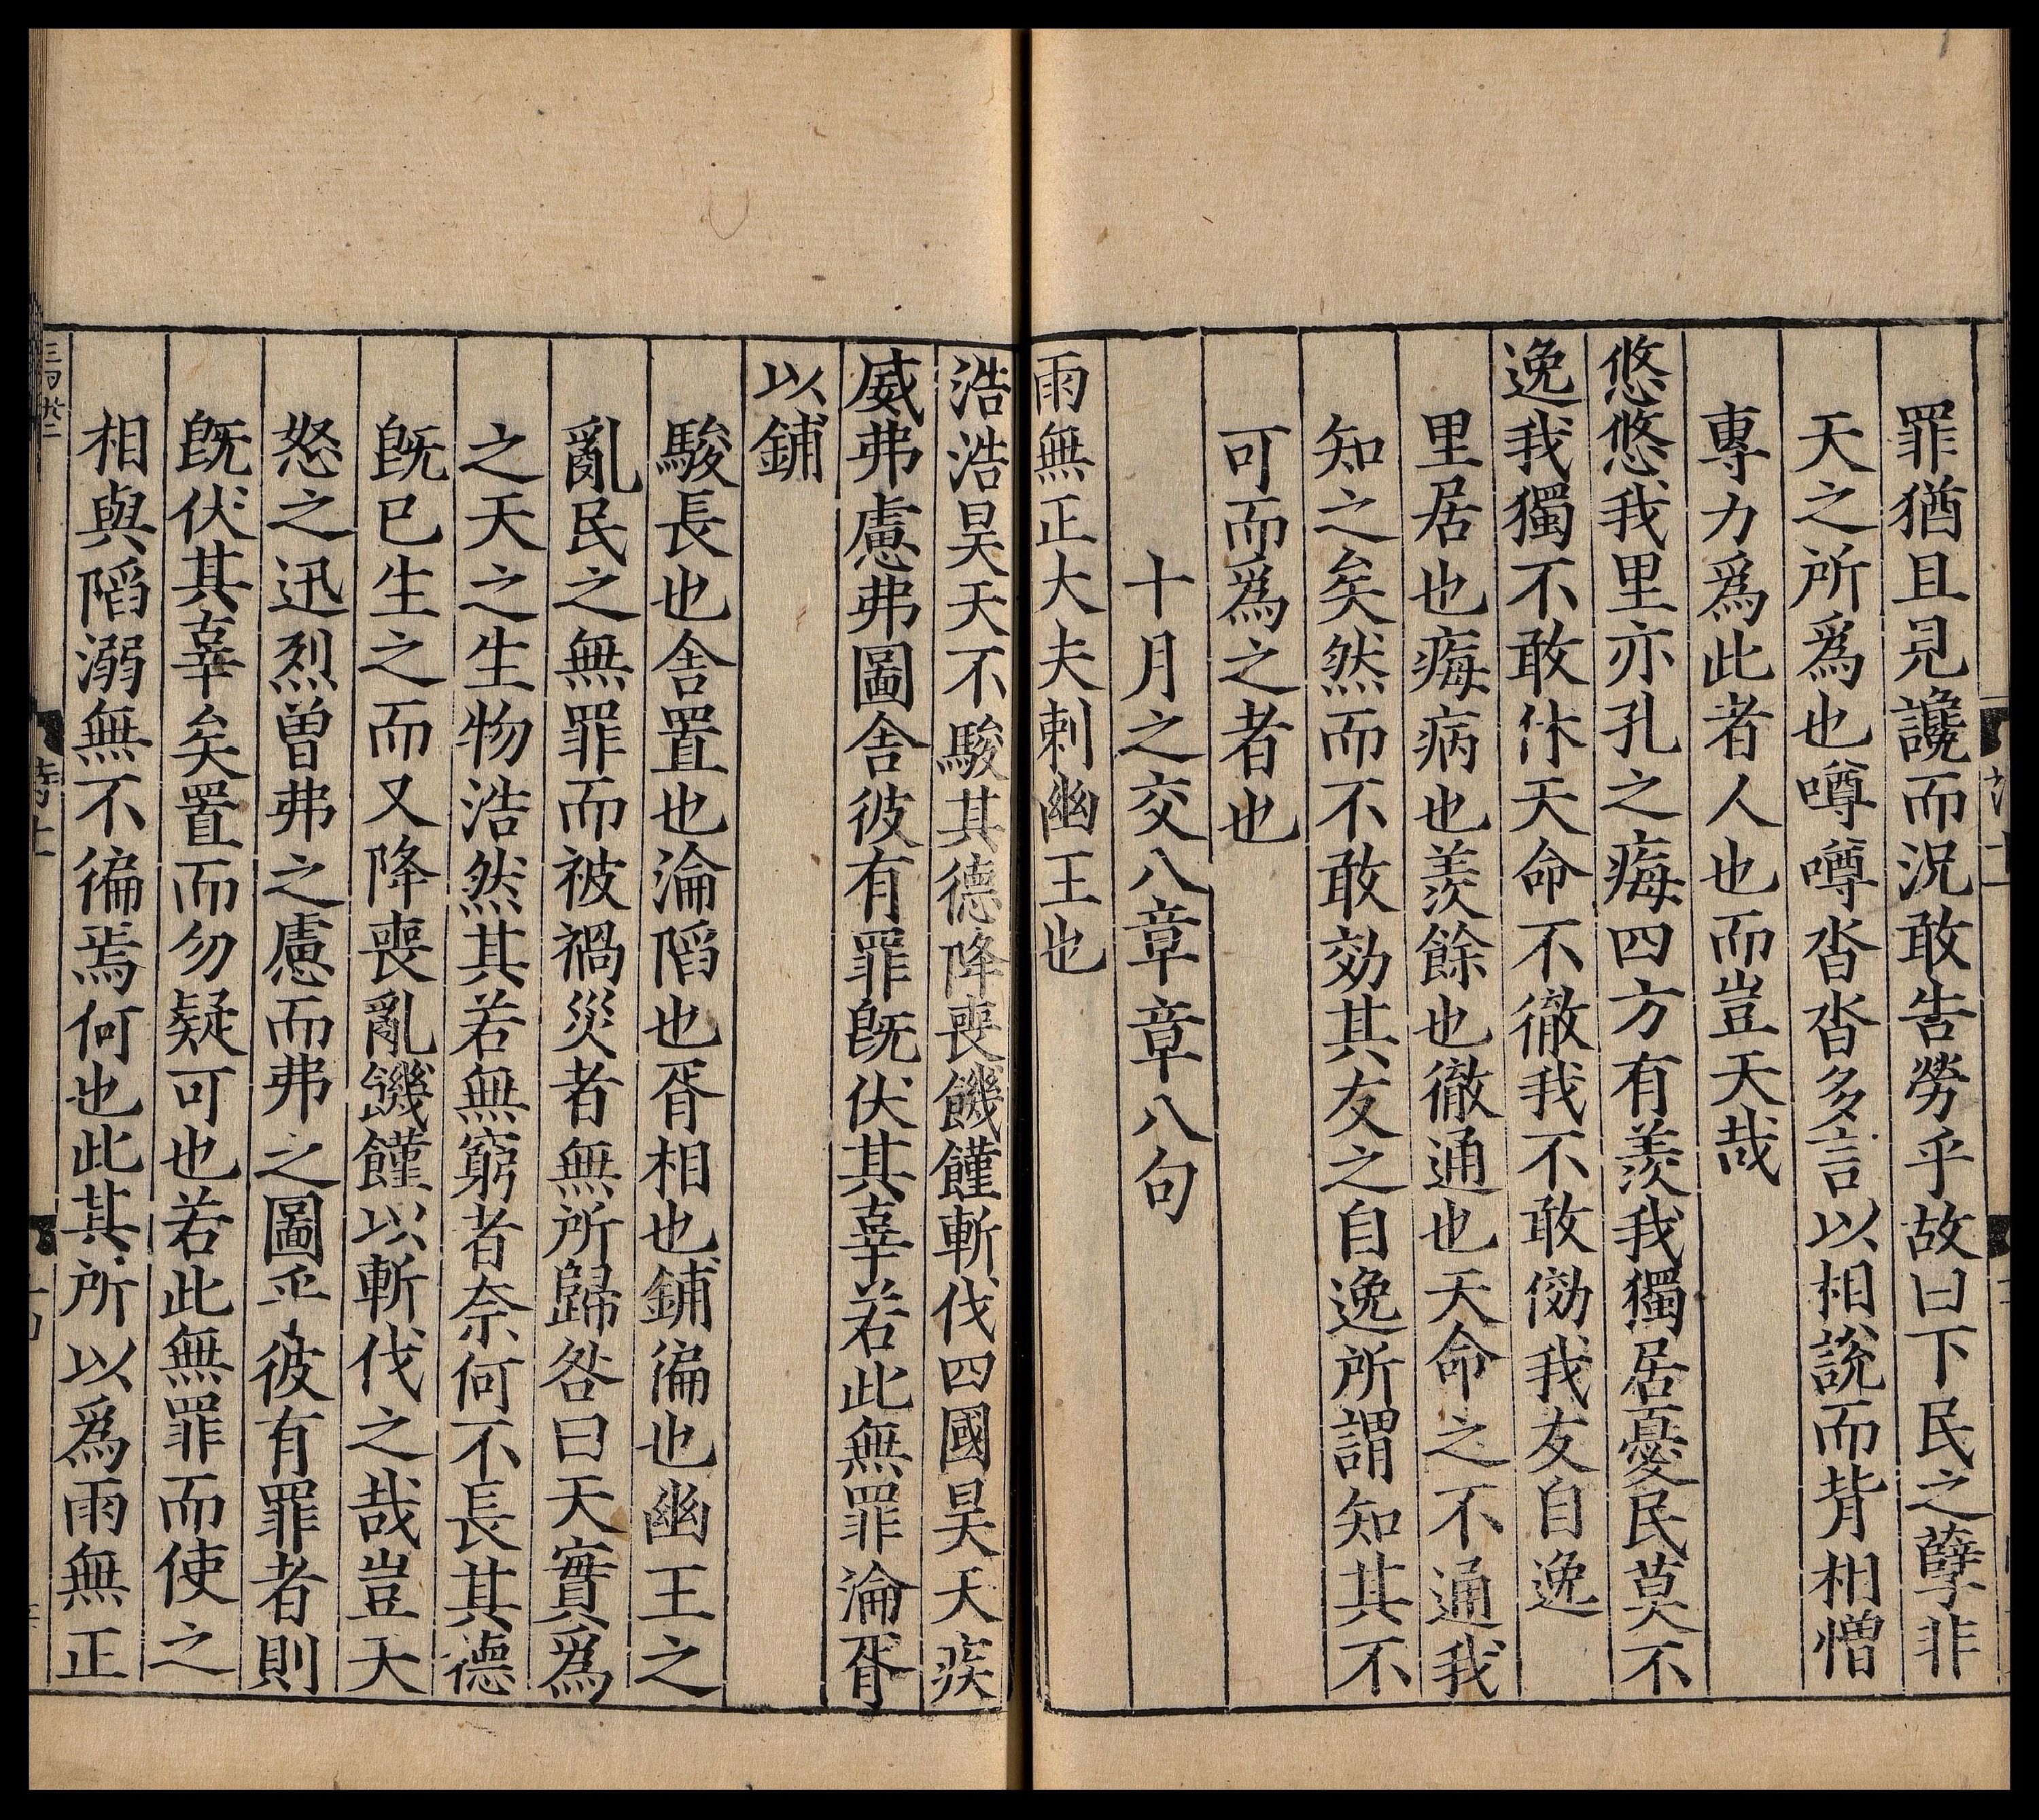 罪猶且見讒而況敢告勞乎故曰下民之孽非
天之所爲也噂噂沓沓多言以相說而背相憎
專力爲此者人也而豈天哉
悠悠我里亦孔之痗四方有羨我獨居憂民莫不
逸我獨不敢休天命不徹我不敢傚我友自逸
里居也痗病也羨餘也徹通也天命之不通我
知之矣然而不敢効其友之自逸所謂知其不
可而爲之者也
十月之交八章章八句
雨無正大夫刺幽王也
浩浩昊天不駿其德降喪饑饉斬伐四國昊天疾
威弗慮弗圖舍彼有罪旣伏其辜若此無罪淪胥
以鋪
駿長也舍置也淪陷也胥相也鋪徧也幽王之
亂民之無罪而被禍災者無所歸咎曰天實爲
之天之生物浩然其若無窮者奈何不長其德
旣已生之而又降喪亂饑饉以斬伐之哉豈天
怒之迅烈曾弗之慮而弗之圖乎彼有罪者則
旣伏其辜矣置而勿疑可也若此無罪而使之
相與陷溺無不徧焉何也此其所以爲雨無正